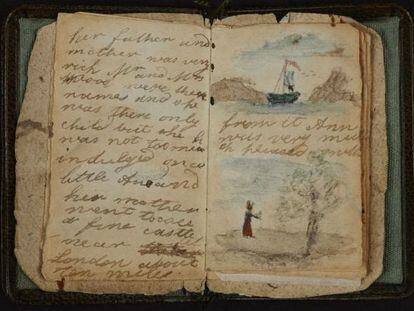 her father and
mother was very
rich Mr and Mrs
Wood were their
names and she
was there only
child but she
was not too mu
indulged once
little Ane and
her mother
went to see
a fine castle
near
London about
ten miles
from it Ane
was very mu
ch pleased with